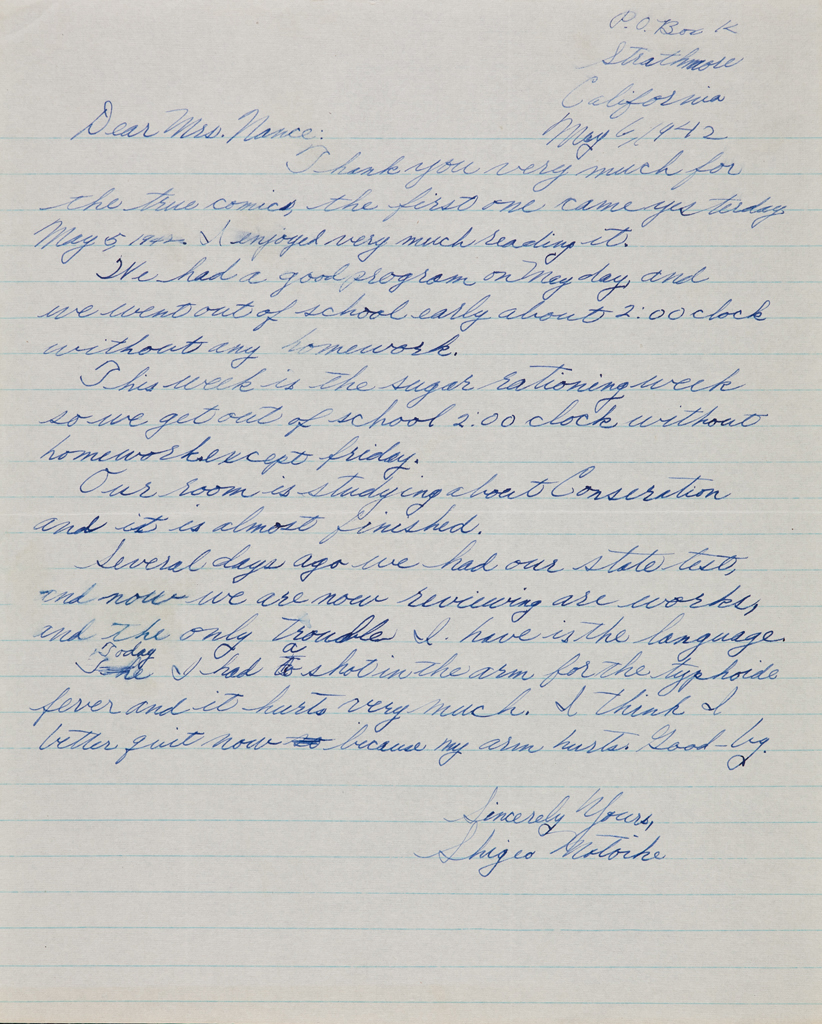 P.O. Box K
Strathmore
California
May 6, 1942
Dear Mrs. Nance:
Thank you very much for
the true comics, the first one came yesterday
May 5, 1942. I enjoyed very much reading it.
We had a good program on May day, and
we went out of school early about 2:00 clock
without any homework.
This week is the sugar rationing week
so we get out of school 2:00 clock without
homework except friday.
Our room is studying about Conseration
and it is almost finished.
Several days ago we had our state test,
and now we are now reviewing are works,
and the only trouble I have is the language.
Today I had a shot in the arm for the typhoide
fever and it hurts very much. I think I
better quit now because my arm hurts. Good-by.
Sincerely Yours,
Shigeo Motoike